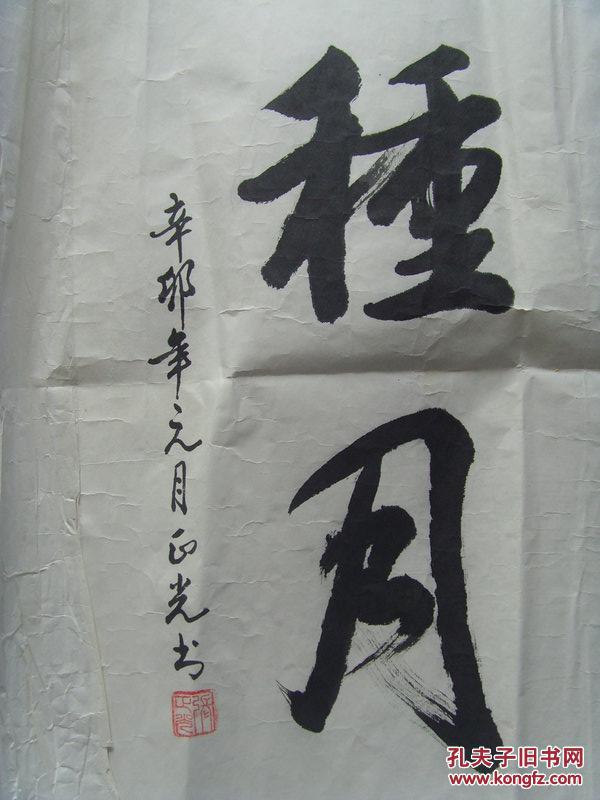 種月
辛邜年元月正光书
孔夫子旧书网
www.kongfz.com